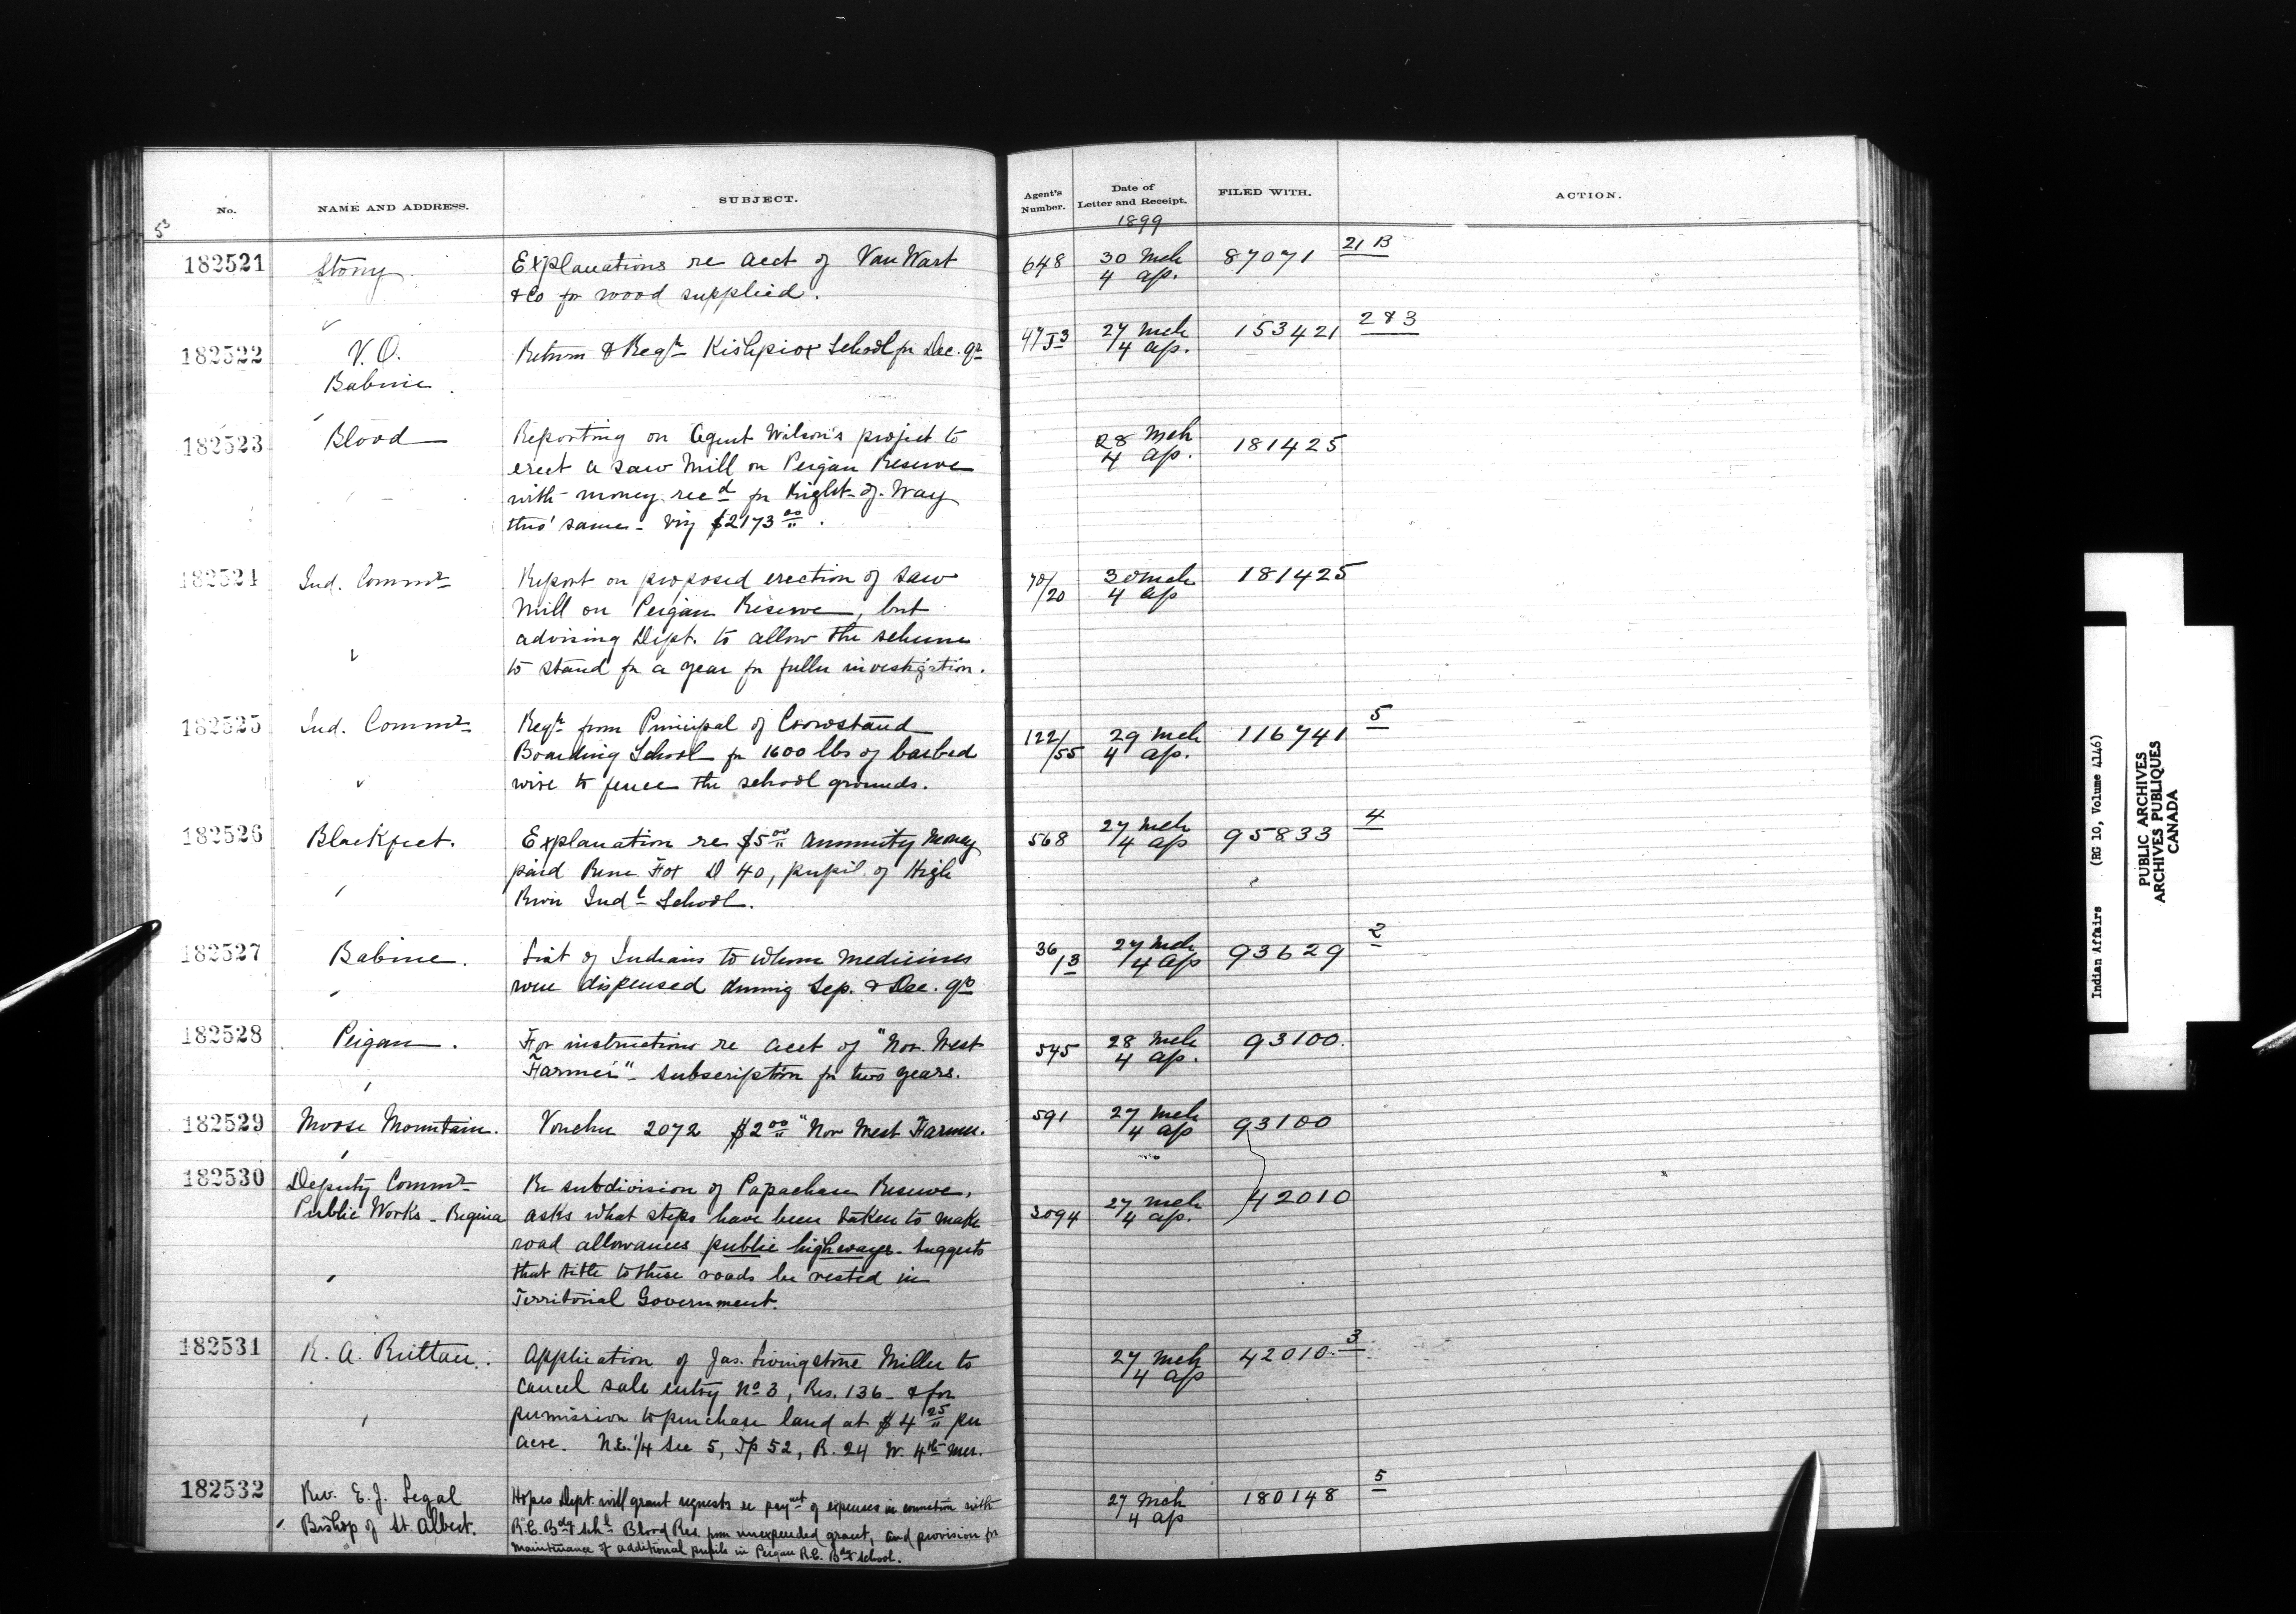 No. NAME AND ADDRESS. SUBJECT. Agent's Number. Date of Letter and Receipt. FILED WITH. ACTION.
1899
182521 Stony Explanations re acct of Van Wart 648 30 Mch 87071 21 B
& Co for wood supplied. 4 ap.
182522 V.O. Return & Reqn Kishpiox School for Dec. qr 27 Mch 153421 283
Babine. 4 ap.
182523 Blood Reporting on Agent Wilson's project to 28 Mch 181425
erect a saw Mill on Peigan Reserve 4 ap.
with money recd for Right-of-Way
thro' same - viz $2173 00.
182524 Ind. Commr Report on proposed erection of saw 70/20 30 Mch 181425
Mill on Peigan Reserve, but 4 ap
advising Dept. to allow the scheme
to stand for a year for fuller investigation.
182525 Ind. Commr Reqn from Principal of Crowstand 122/55 29 Mch 116741 5
Boarding School for 1600 lbs of barbed 4 ap.
wire to fence the school grounds.
182526 Blackfeet. Explanation re $5 00 Annuity Money 568 27 Mch 95833 4
paid Rene Fox D 40, pupil of High 4 ap
River Indl School.
182527 Babine. List of Indians to whom Medicines 36/13 27 Mch 93629 2
were dispensed during Sep. & Dec. qrs 4 ap
182528 Peigan. For instructions re acct of "Nor West 545 28 Mch 93100.
Farmer" - subscription for two years. 4 ap.
182529 Moose Mountain. Voucher 2072 $2 00 "Nor West Farmer. 591 27 Mch 93100
4 ap
182530 Deputy Commr Re subdivision of Papachase Reserve, 27 Mch 42010
Public Works - Regina asks what steps have been taken to make 3094 4 ap.
road allowances public highways - suggests
that title to these roads be vested in
Territorial Government.
182531 R. A. Ruttan. Application of Jas. Livingstone Miller to 27 Mch 42010. 3
cancel sale entry No 3, Res. 136 - & for 4 ap
permission to purchase land at $4 25 per
acre. N.E. 1/4 Sec 5, Tp 52, R. 24 W. 4th Mer.
182532 Rev. E. J. Legal Hopes Dept. will grant requests re paymt of expenses in connection with 27 Mch 180148 5
Bishop of St. Albert. R.C. Bdg Schl Blood Res from unexpended grant, and provision for 4 ap
maintenance of additional pupils in Peigan R.C. Bdg School.
Indian Affairs (RG 10, Volume 4146)
PUBLIC ARCHIVES
ARCHIVES PUBLIQUES
CANADA